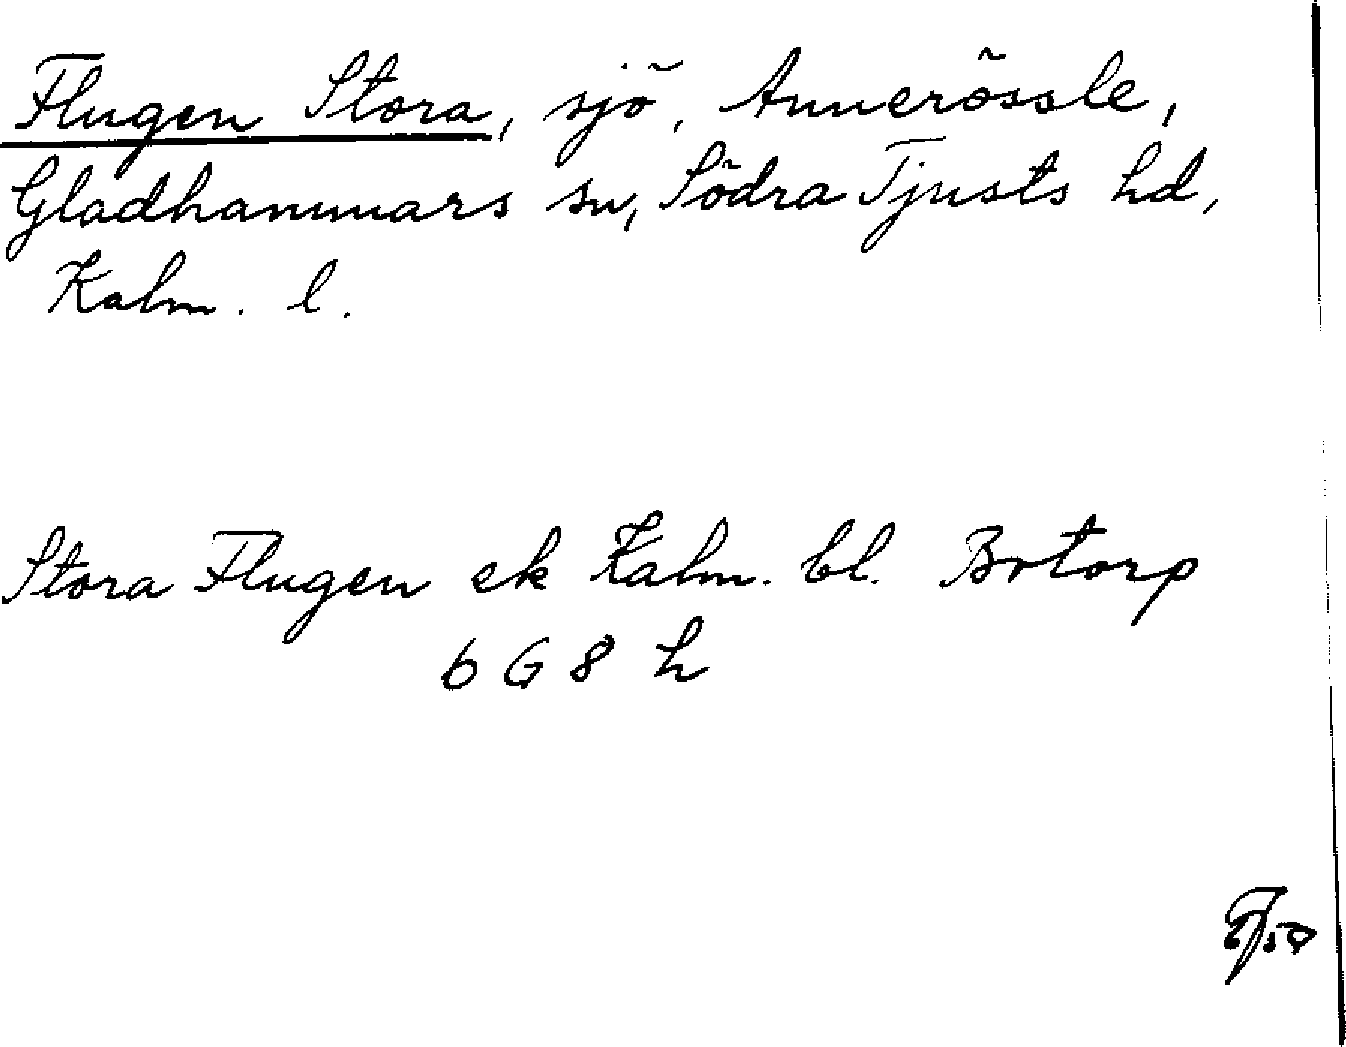 Flugen Stora, sjö, Annerössle,
Gladhammars sn, Södra Tjusts hd,
Kalm. l.
Stora Flugen ek Kalm. bl. Botorp
6 G 8 h